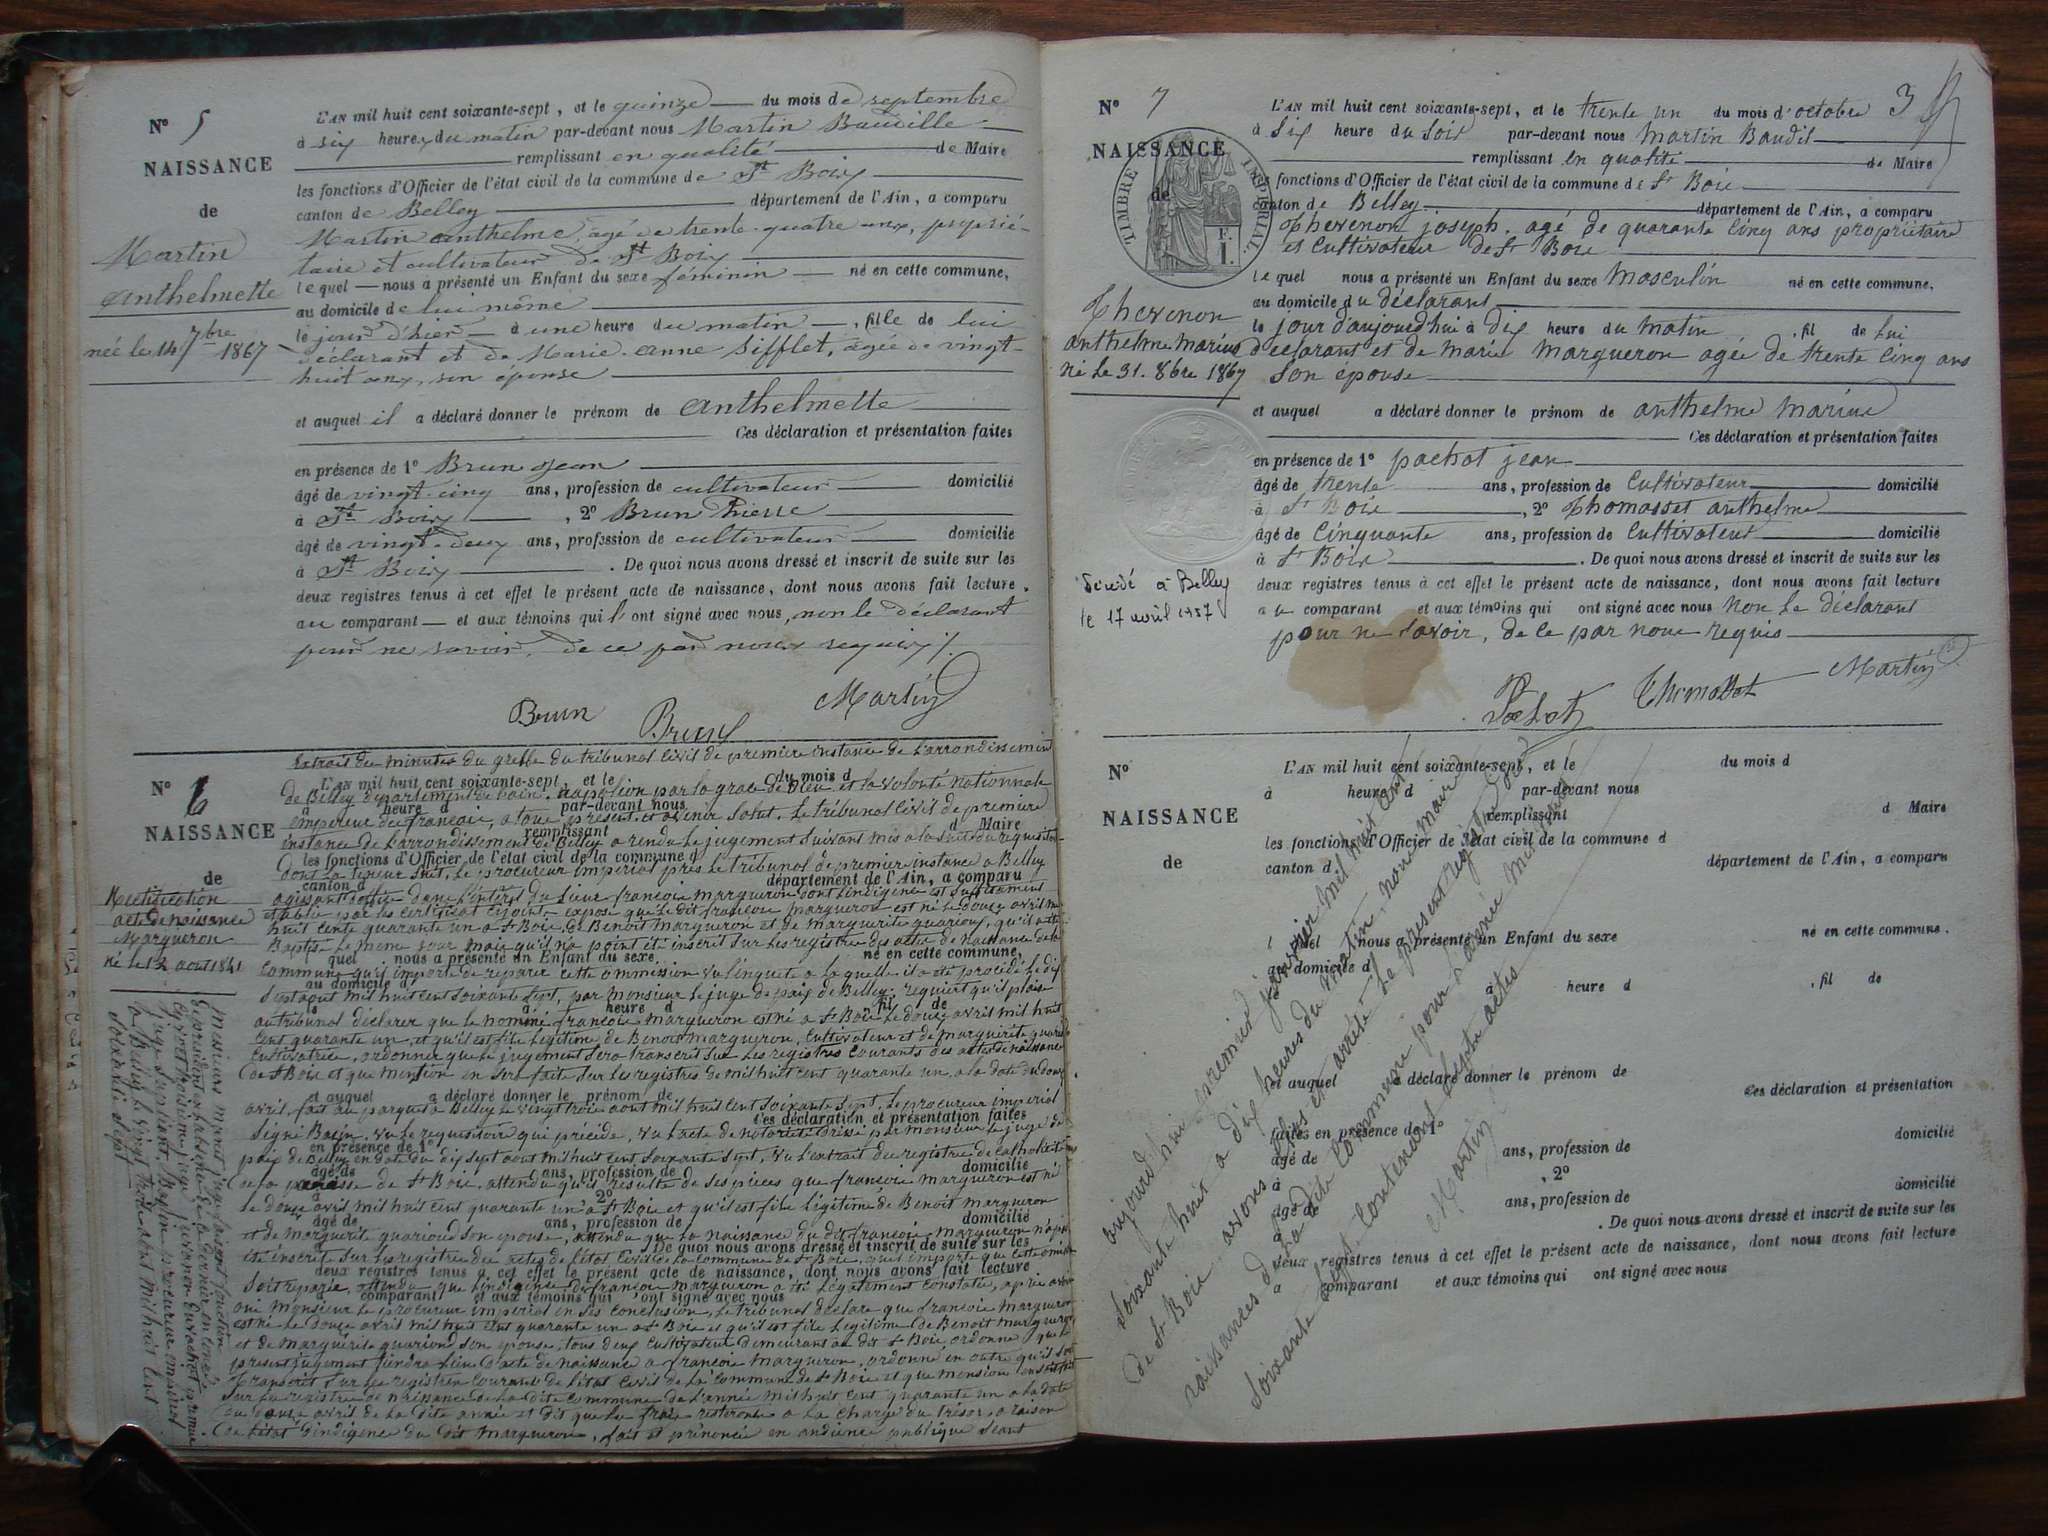 N° 5
NAISSANCE
de
Martin
Anthelmette
née le 14 7bre 1867
L'AN mil huit cent soixante-sept, et le quinze du mois de septembre
à six heures du matin par-devant nous Martin Baudille
remplissant en qualité de Maire
les fonctions d'Officier de l'état civil de la commune de St Boix
canton de Belley département de l'Ain, a comparu
Martin Anthelme, âgé de trente-quatre ans, proprié-
taire et cultivateur de St Boix
lequel nous a présenté un Enfant du sexe féminin né en cette commune,
au domicile de lui même
le jour d'hier à une heure du matin, fille de lui
déclarant et de Marie-Anne Sifflet, âgée de vingt-
huit ans, son épouse
et auquel il a déclaré donner le prénom de Anthelmette
Ces déclaration et présentation faites
en présence de 1° Brun Jean
âgé de vingt-cinq ans, profession de cultivateur domicilié
à St Boix, 2° Brun Pierre
âgé de vingt-deux ans, profession de cultivateur domicilié
à St Boix. De quoi nous avons dressé et inscrit de suite sur les
deux registres tenus à cet effet le présent acte de naissance, dont nous avons fait lecture
au comparant et aux témoins qui l'ont signé avec nous, non le déclarant
pour ne savoir, de ce par nous requis /.
Brun Brun Martin
N° 6
NAISSANCE
de
Rectification
acte de naissance
Margueron
né le 12 aout 1841
Extrait des minutes du greffe du tribunal civil de premiere instance de l'arrondissement
de Belley departement de l'ain. Napoléon par la grace de Dieu et la volonté nationnale
empereur des francais, a tous présent et avenir salut. Le tribunal Civil de premiere
instance de l'arrondissement de Belley a rendu le jugement suivant mis a la suite du requisitoire
dont la teneur suit, Le procureur imperial près le tribunal de premiere instance a Belley
agissant d'office dans l'intérêt du sieur francois margueron dont l'indigence est suffisament
établie par les certificat cijoint, expose que le dit francois margueron est né le douze avril mil
huit cents quarante un a St Boix de Benoit margueron et de marguerite quarioud, qu'il a été
Baptisé le meme jour mais qu'il na point été inscrit sur les registres des actes de naissance de la
commune qu'il importe de reparer cette ommission vu l'inquete a la quelle il a été procédé le dix
sept aout mil huit cent soixante sept, par monsieur le juge de paix de Belley; requiert qu'il plaise
au tribunal déclarer que le nommé francois margueron est né a St Boix le douze avril mil huit
cent quarante un, et qu'il est fils légitime de Benoit margueron, cultivateur et de marguerite quarioud
cultivatrice, ordonner que le jugement sera transcrit sur les registres courants des actes de naissance
de St Boix et que mention en sera faite sur les registres de mil huit cent quarante un a la date du douze
avril, fait au parquet a Belley le vingt trois aout mil huit cent soixante sept. Le procureur imperial
signé Bazin, vu le requisitoire qui précède, vu l'acte de notorieté dressé par monsieur le juge de
paix de Belley en date du dix sept aout mil huit cent soixante sept, vu l'extrait des registres de catholicité
de la paroisse de St Boix, attendu qu'il résulte de ses pieces que francois margueron est né
le douze avril mil huit cent quarante un a St Boix et qu'il est fils légitime de Benoit margueron
et de marguerite quarioud son epouse, attendu que la naissance du dit francois margueron n'a pas
été inscrite sur les registres des actes de l'état Civil de la commune de St Boix, qu'il importe que cette omission
soit reparée, attendu que l'indigence de francois margueron a été légalement constatée, après avoir
oui monsieur le procureur imperial en ses conclusion, Le tribunal déclare que francois margueron
est né le douze avril mil huit cent quarante un a St Boix et qu'il est fils légitime de Benoit margueron
et de marguérite quarioud son epouse, tous deux cultivateur demeurant au dit St Boix, ordonne que le
present jugement tiendra lieu d'acte de naissance a francois margueron, ordonne en outre qu'il soit
transcrit sur les registres courants de l'état civil de la commune de St Boix et que mention en soit fait
sur les registre de naissance de la dite commune de l'année mil huit cent quarante un a la date
du douze avril de la dite année et dit que les frais resteront a la charge du trésor a raison
de l'état d'indigence du dit margueron, fait et prononcé en audience publique séant
L'AN mil huit cent soixante-sept, et le du mois d
à heure d par-devant nous
remplissant d Maire
les fonctions d'Officier de l'état civil de la commune d
canton d département de l'Ain, a comparu
quel nous a présenté un Enfant du sexe né en cette commune,
au domicile d
le à heure d fil de
et auquel a déclaré donner le prénom de
Ces déclaration et présentation faites
en présence de 1°
âgé de ans, profession de domicilié
à 2°
âgé de ans, profession de domicilié
à De quoi nous avons dressé et inscrit de suite sur les
deux registres tenus à cet effet le présent acte de naissance, dont nous avons fait lecture
comparant et aux témoins qui ont signé avec nous
a Belley le vingt trois aout mil huit cent
soixante sept
N° 7
NAISSANCE
de
TIMBRE IMPERIAL
1 F.
Thevenon
anthelme marius
né le 31. 8bre 1867
Décédé à Belley
le 17 avril 1957
3
L'AN mil huit cent soixante-sept, et le trente un du mois d'octobre
à six heure du soir par-devant nous Martin Baudil
remplissant en qualité de Maire
fonctions d'Officier de l'état civil de la commune de St Boix
canton de Belley département de l'Ain, a comparu
Thevenon joseph. agé de quarante cinq ans propriétaire
et cultivateur de St Boix
lequel nous a présenté un Enfant du sexe masculin né en cette commune,
au domicile du déclarant
le jour d'aujourd'hui à dix heure du matin, fil de lui
declarant et de marie margueron agée de trente cinq ans
son épouse
et auquel a déclaré donner le prénom de anthelme marius
Ces déclaration et présentation faites
en présence de 1° pochot jean
âgé de trente ans, profession de Cultivateur domicilié
à St Boix, 2° Thomasset anthelme
âgé de cinquante ans, profession de Cultivateur domicilié
à St Boix. De quoi nous avons dressé et inscrit de suite sur les
deux registres tenus à cet effet le présent acte de naissance, dont nous avons fait lecture
au comparant et aux témoins qui ont signé avec nous non le déclarant
pour ne savoir, de ce par nous requis
Pochot Thomasset Martin
N°
NAISSANCE
de
L'AN mil huit cent soixante-sept, et le du mois d
à heure d par-devant nous
remplissant d Maire
les fonctions d'Officier de l'état civil de la commune d
canton d département de l'Ain, a comparu
l quel nous a présenté un Enfant du sexe né en cette commune.
au domicile d
à heure d, fil de
et auquel a déclaré donner le prénom de
Ces déclaration et présentation
faites en présence de 1°
âgé de ans, profession de domicilié
à, 2°
âgé de ans, profession de domicilié
. De quoi nous avons dressé et inscrit de suite sur les
deux registres tenus à cet effet le présent acte de naissance, dont nous avons fait lecture
a comparant et aux témoins qui ont signé avec nous
aujourd'hui premier janvier mil huit cent
soixante huit a dix heures du matin, nous maire
de St Boix avons clos et arrêté le present registre de
naissances de la dite commune pour l'année mil huit cent
soixante sept contenant septe actes
Martin